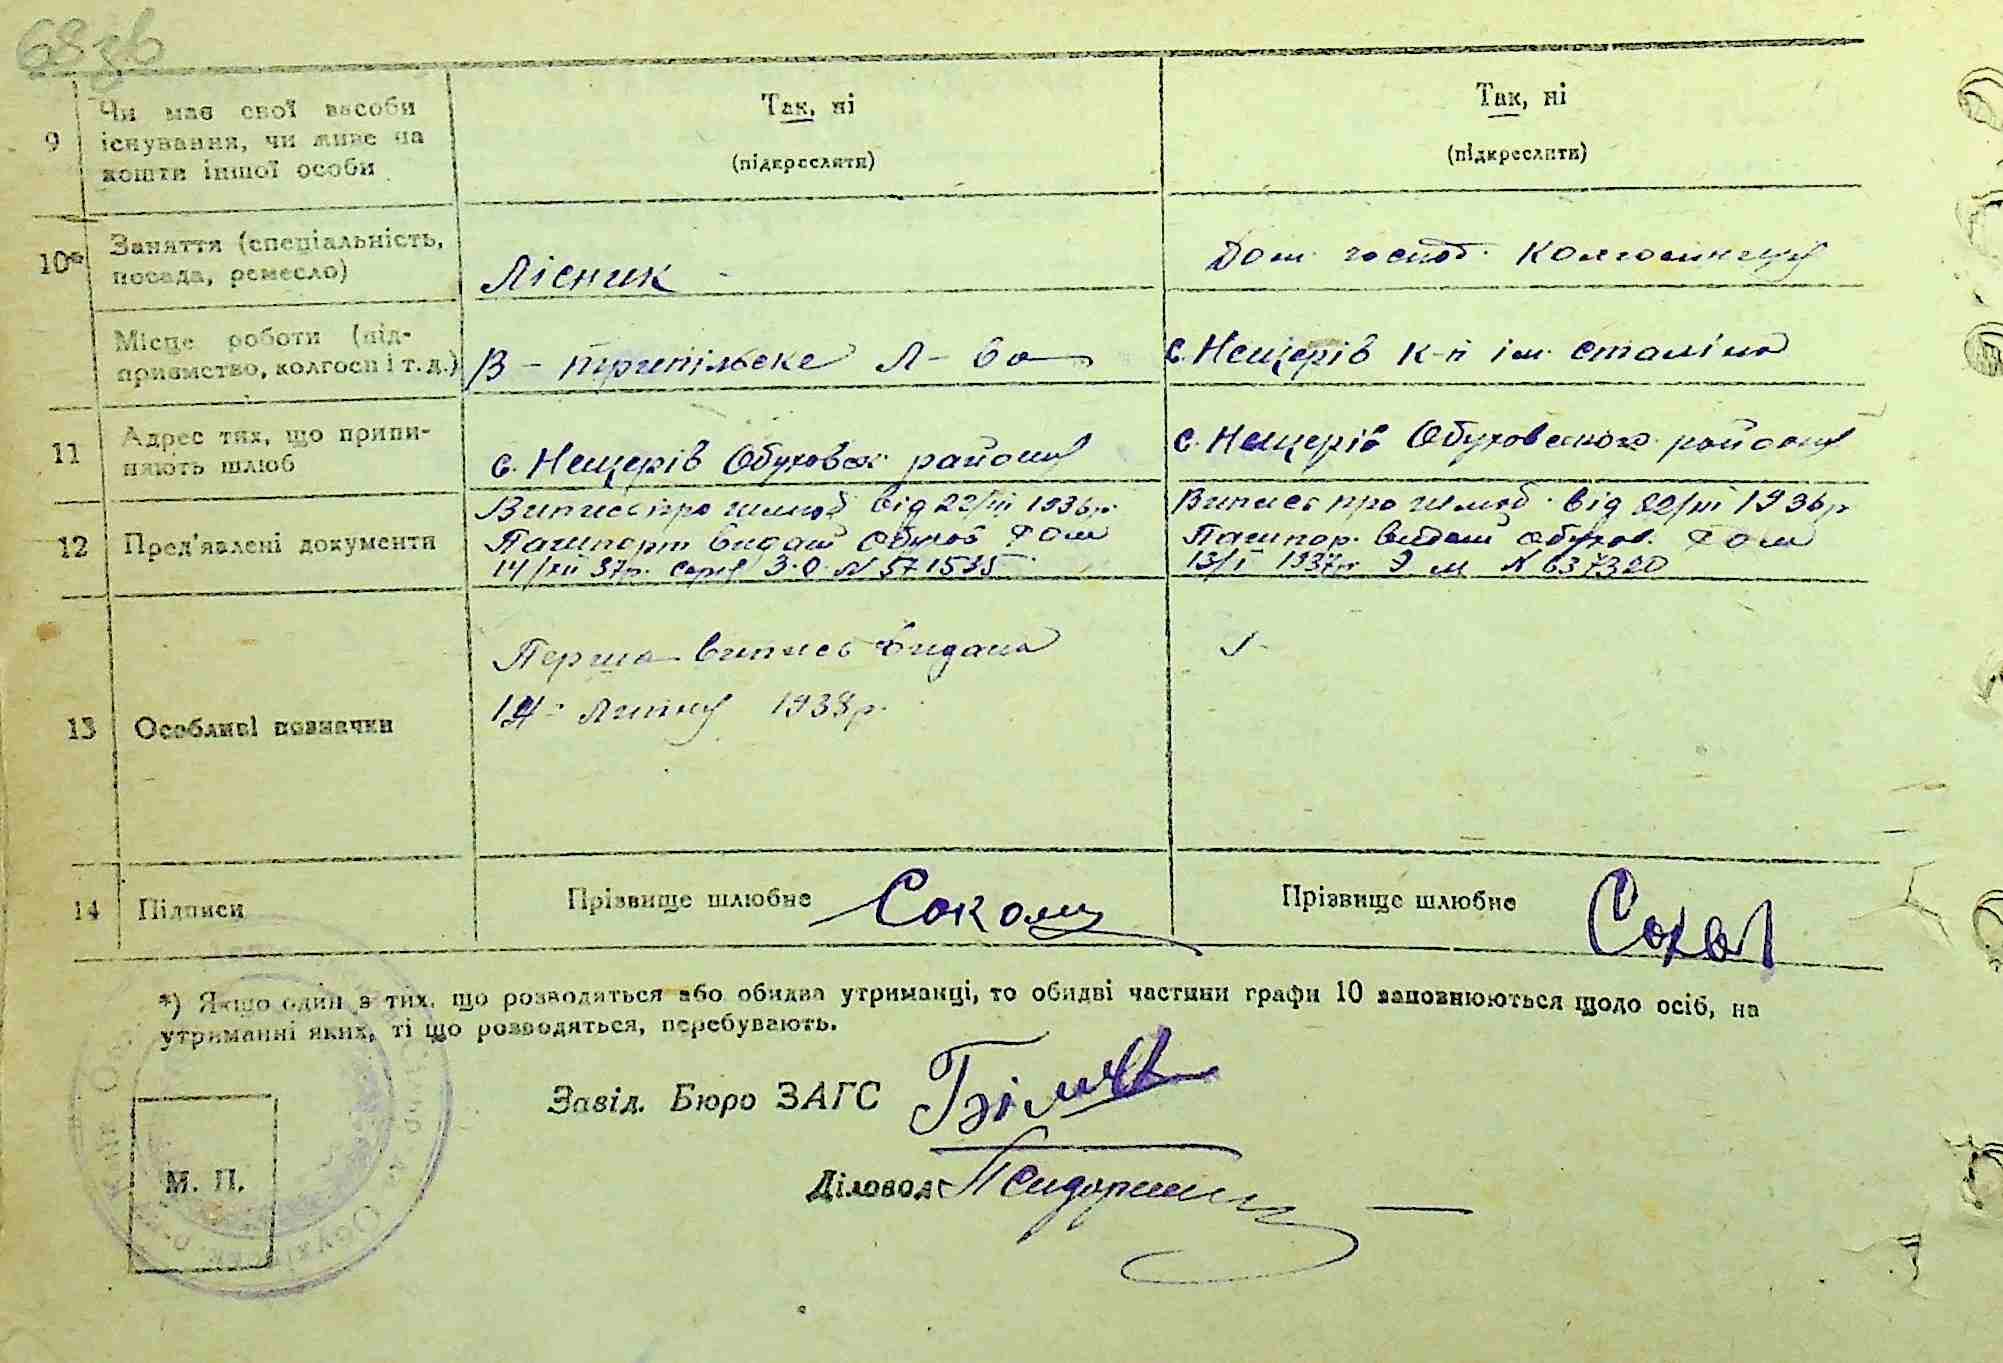 68зв
9
Чи має свої засоби
існування, чи живе на
кошти іншої особи
Так, ні
(підкреслити)
Так, ні
(підкреслити)
10*
Заняття (спеціальність,
посада, ремесло)
Лісник
Дом. господ. Колгоспниця
Місце роботи (під-
приємство, колгосп і т. д.)
В-трипільске Л-во
с. Нещерів к-п ім. Сталіна
11
Адрес тих, що припи-
няють шлюб
с. Нещерів Обуховск. району
с. Нещерів Обуховского району
12
Пред'явлені документи
Випись про шлюб від 22/III 1936р.
Пашпорт видан Обухов РОМ
14/XII 37р. серія З.О. N 571535
Випись про шлюб від 22/III 1936р
Пашпор. видан Обухов. РОМ
13/I 1937р. Э м N 637320
13
Особливі позначки
Перша випись видана
14 - липня 1938р.
14
Підписи
Прізвище шлюбне
Прізвище шлюбне
Сокол
*) Якщо один з тих, що розводяться або обидва утриманці, то обидві частини графи 10 заповнюються щодо осіб, на
утриманні яких, ті що розводяться, перебувають.
Завід. Бюро ЗАГС
Діловод
М. П.